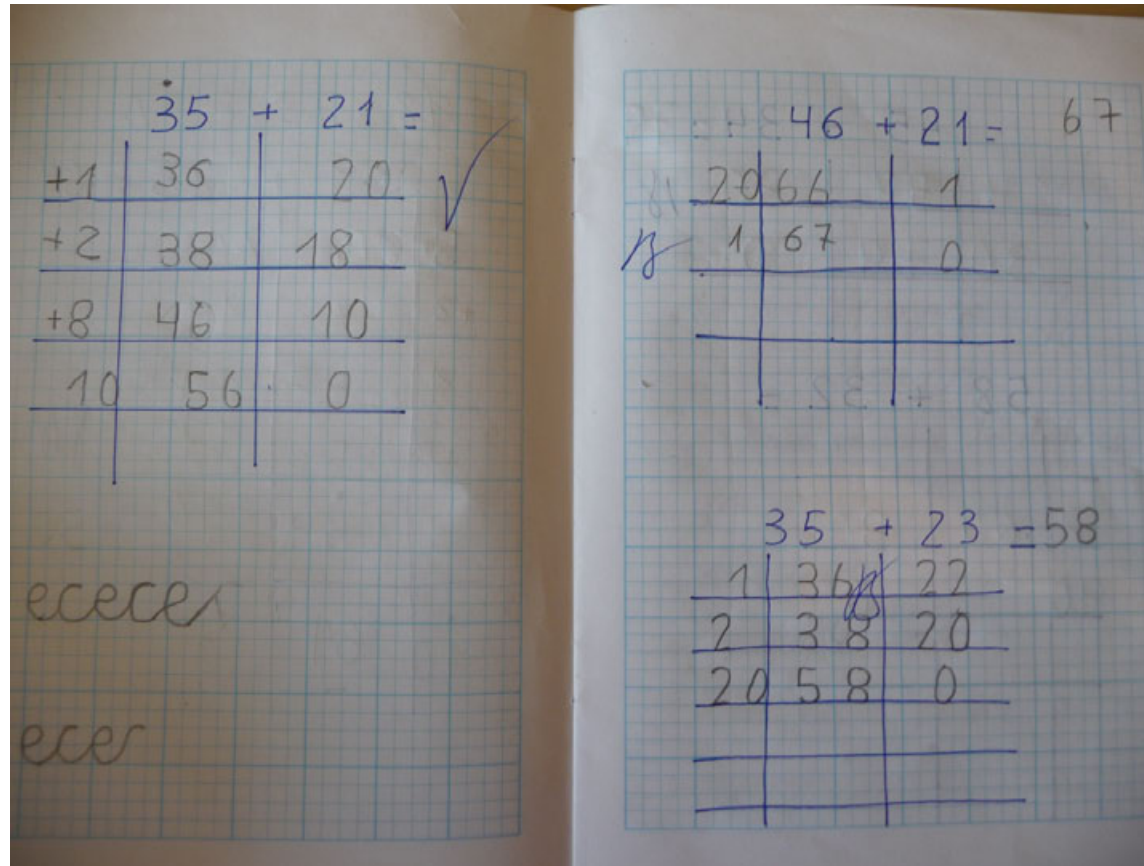 35 + 21 =
+1 36 20
+2 38 18
+8 46 10
10 56 0
ecece
ece
46 + 21 = 67
20 66 1
1 67 0
35 + 23 = 58
1 36 22
2 38 20
20 58 0